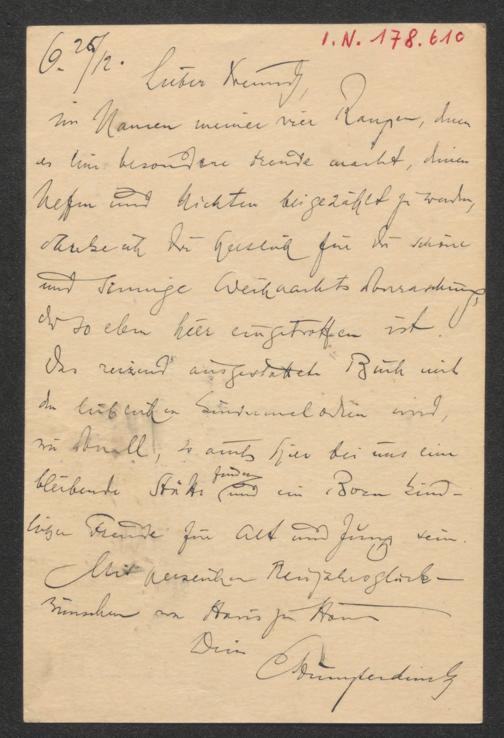 I.N. 178.610
6. 26/12.
Lieber Freund,
im Namen meiner vier Rangen, denen
es eine besondere Freude macht, deinen
Neffen und Nichten beigezählt zu werden,
danke ich Dir herzlich für die schöne
und sinnige Weihnachtsüberraschung,
die soeben hier eingetroffen ist.
Das reizend ausgestattete Buch mit
den lieblichen Kindermelodien wird,
wie überall, so auch hier bei uns eine
bleibende Stätte finden und ein Born kind-
licher Freude für Alt und Jung sein.
Mit herzlichen Neujahrsglück-
wünschen von Haus zu Haus
Dein
EHumperdinck